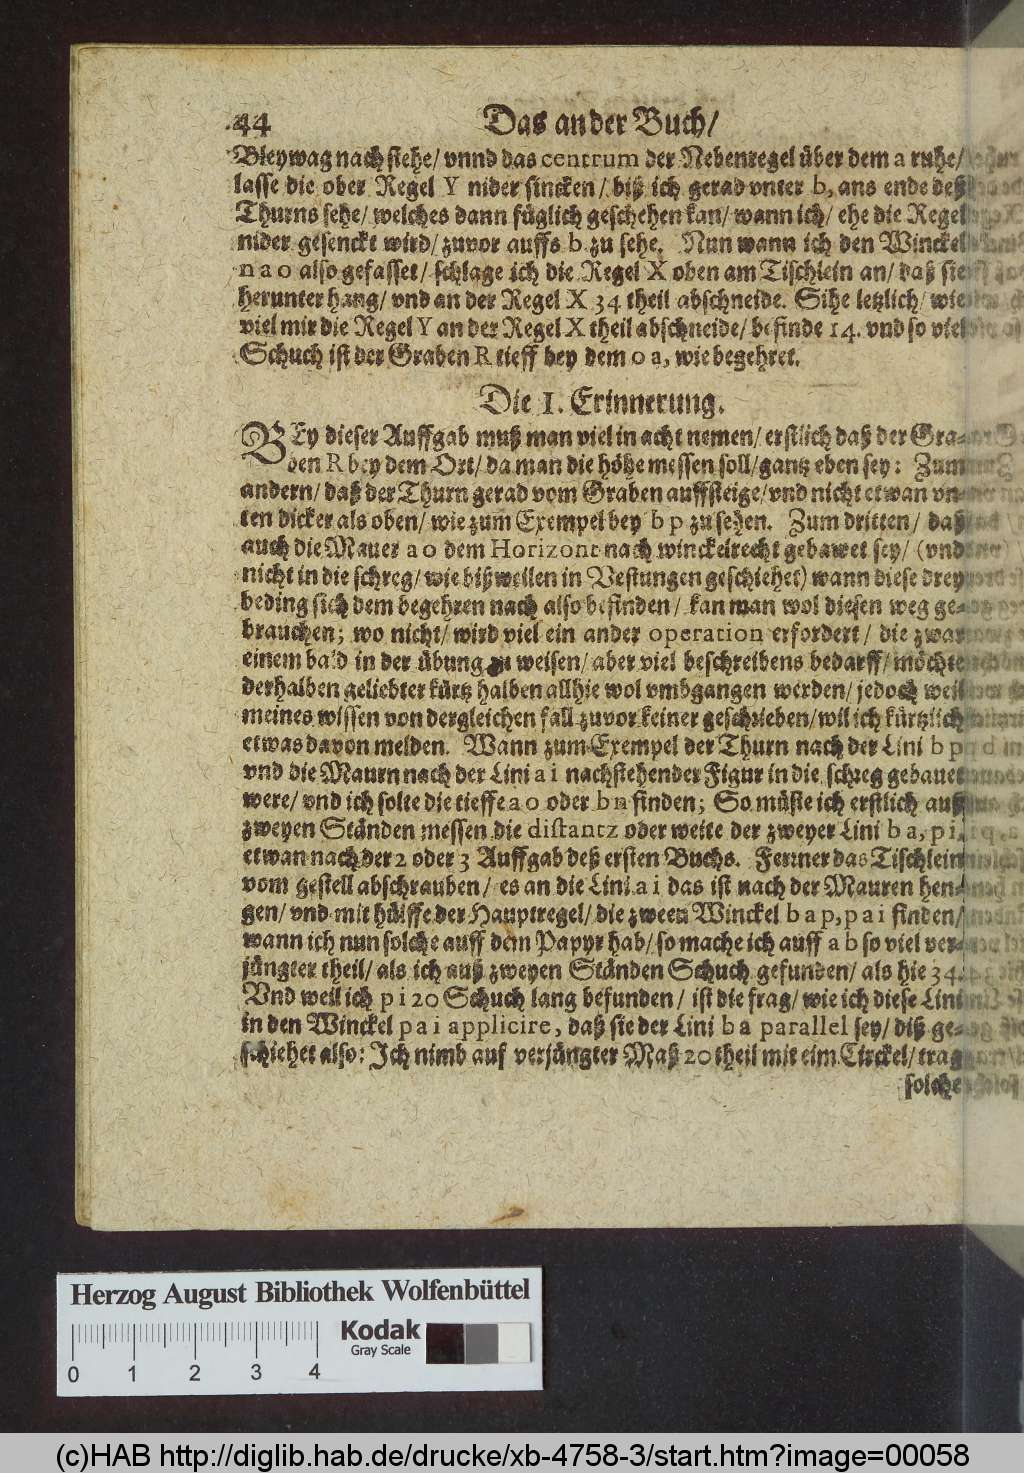 44 Das ander Buch/
Bleywag nach stehe/ vnnd das centrum der Nebenregel über dem a ruhe/
lasse die ober Regel Y nider sincken/ biß ich gerad vnter b, ans ende deß
Thurns sehe/ welches dann füglich geschehen kan/ wann ich/ ehe die Regel
nider gesenckt wird/ zuvor auffs b zu sehe. Nun wann ich den Winckel
n a o also gefasset/ schlage ich die Regel X oben am Tischlein an/ daß sie
herunter hang/ vnd an der Regel X 34 theil abschneide. Sihe letzlich/ wie
viel mir die Regel Y an der Regel X theil abschneide/ befinde 14. vnd so viel
Schuch ist der Graben R tieff bey dem o a, wie begehret.
Die I. Erinnerung.
BEy dieser Auffgab muß man viel in acht nemen/ erstlich daß der Gra-
ben R bey dem Ort/ da man die höhe messen soll/ gantz eben sey: Zum
andern/ daß der Thurn gerad vom Graben auffsteige/ vnd nicht etwan vn-
ten dicker als oben/ wie zum Exempel bey b p zu sehen. Zum dritten/ daß
auch die Mauer a o dem Horizont nach winckelrecht gebawet sey/ (vnd
nicht in die schreg/ wie bißweilen in Vestungen geschiehet) wann diese drey
beding sich dem begehren nach also befinden/ kan man wol diesen weg ge-
brauchen; wo nicht/ wird viel ein ander operation erfordert/ die zwar
einem bald in der übung zu weisen/ aber viel beschreibens bedarff/ möchte
derhalben geliebter kürtz halben allhie wol vmbgangen werden/ jedoch weil
meines wissen von dergleichen fall zuvor keiner geschrieben/ wil ich kürtzlich
etwas davon melden. Wann zum Exempel der Thurn nach der Lini b p
vnd die Maurn nach der Lini a i nachstehender Figur in die schreg gebauet
were/ vnd ich solte die tieffe a o oder b n finden; So müste ich erstlich auß
zweyen Ständen messen die distantz oder weite der zweyer Lini b a, p i,
etwan nach der 2 oder 3 Auffgab deß ersten Buchs. Ferrner das Tischlein
vom gestell abschrauben/ es an die Lini a i das ist nach der Mauren hen-
gen/ vnd mit hülffe der Hauptregel/ die zween Winckel b a p, p a i finden/
wann ich nun solche auff dem Papyr hab/ so mache ich auff a b so viel ver-
jüngter theil/ als ich auß zweyen Ständen Schuch gefunden/ als hie 34.
Vnd weil ich p i 20 Schuch lang befunden/ ist die frag/ wie ich diese Lini
in den Winckel p a i applicire, daß sie der Lini b a parallel sey/ diß ge-
schiehet also: Ich nimb auf verjüngter Maß 20 theil mit eim Circkel/ trag
solche
Herzog August Bibliothek Wolfenbüttel
Kodak
Gray Scale
0 1 2 3 4
(c)HAB http://diglib.hab.de/drucke/xb-4758-3/start.htm?image=00058